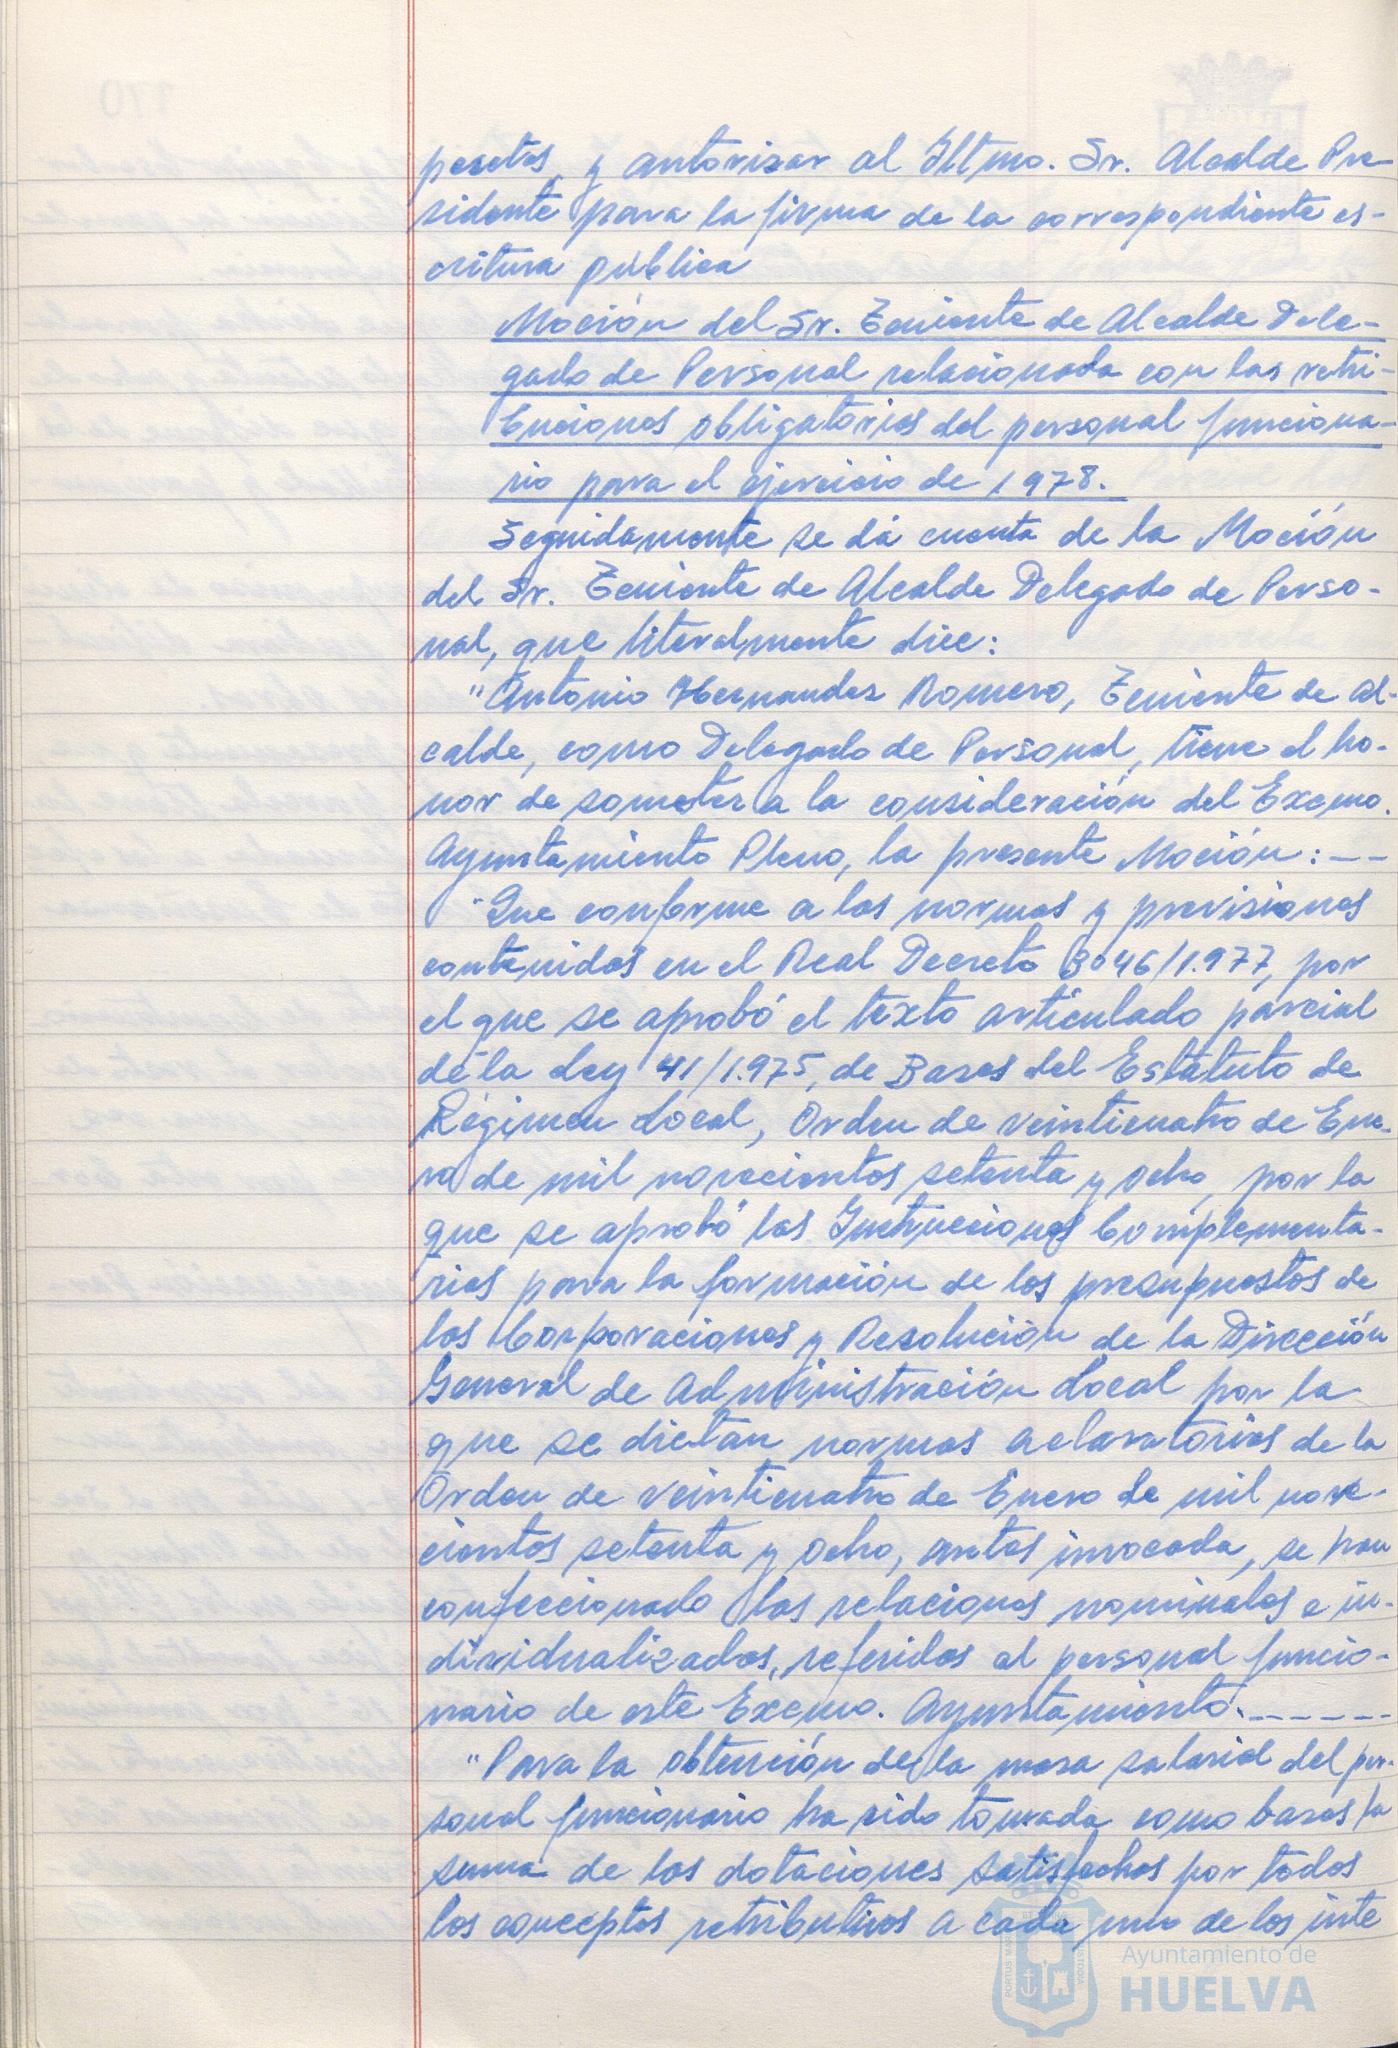 pesetas, y autorizar al Iltmo. Sr. Alcalde Pre
sidente para la firma de la correspondiente es-
critura pública
Moción del Sr. Teniente de Alcalde Dele-
gado de Personal relacionada con las retri-
buciones obligatorias del personal funciona-
rio para el ejercicio de 1978.
Seguidamente se dá cuenta de la Moción
del Sr. Teniente de Alcalde Delegado de Perso-
nal, que literalmente dice:
"Antonio Hernandez Romero, Teniente de Al-
calde, como Delegado de Personal, tiene el ho-
nor de someter a la consideración del Excmo.
Ayuntamiento Pleno, la presente Moción: --
"Que conforme a las normas y previsiones
contenidas en el Real Decreto 3046/1.977, por
el que se aprobó el texto articulado parcial
de la Ley 41/1.975, de Bases del Estatuto de
Régimen Local, Orden de veinticuatro de Ene-
ro de mil novecientos setenta y ocho, por la
que se aprobó las Instrucciones Complementa-
rias para la formación de los presupuestos de
las Corporaciones y Resolución de la Dirección
General de Administración Local por la
que se dictan normas aclaratorias de la
Orden de veinticuatro de Enero de mil nove-
cientos setenta y ocho, antes invocada, se han
confeccionado las relaciones nominales e in-
dividualizadas, referidas al personal funcio-
nario de este Excmo. Ayuntamiento.------
"Para la obtención de la masa salarial del per-
sonal funcionario ha sido tomada como bases la
suma de las dotaciones satisfechas por todos
los conceptos retributivos a cada uno de los inte
Ayuntamiento de
HUELVA